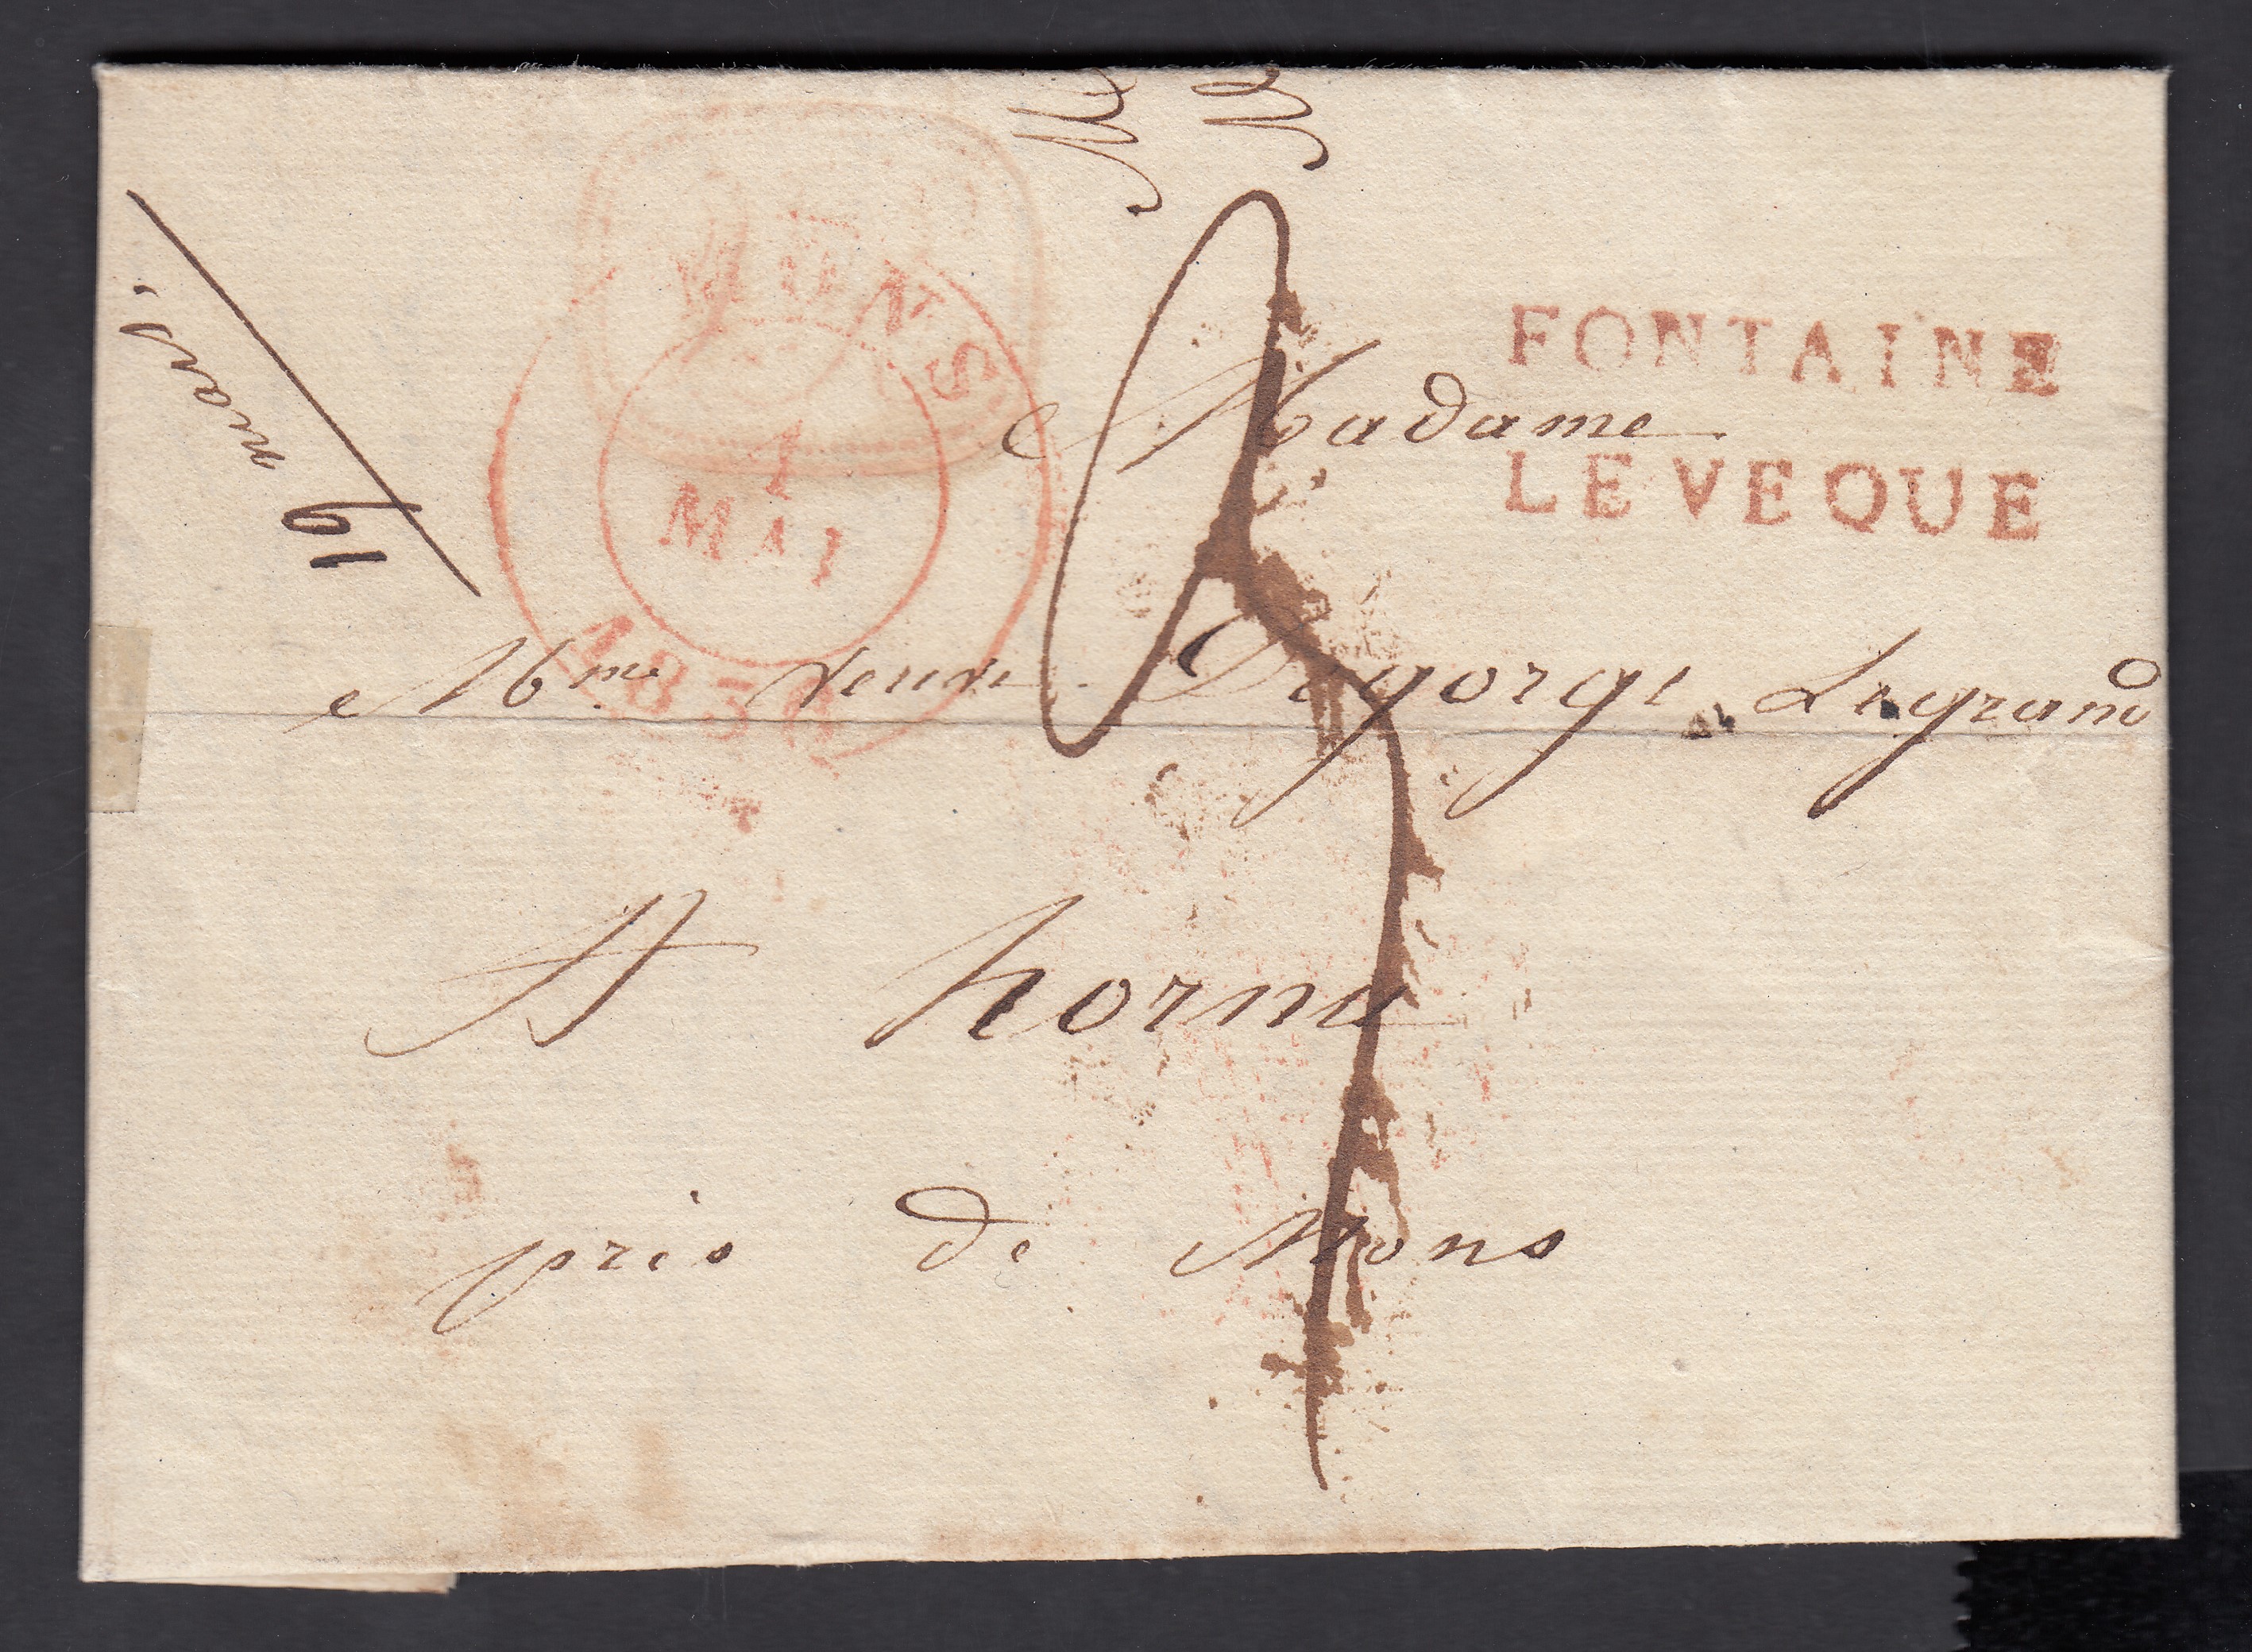 MONS
1
MAI
183
FONTAINE
LEVEQUE
Madame
Mme veuve Degorge Legrand
A hornu
près de Mons
19 mars.